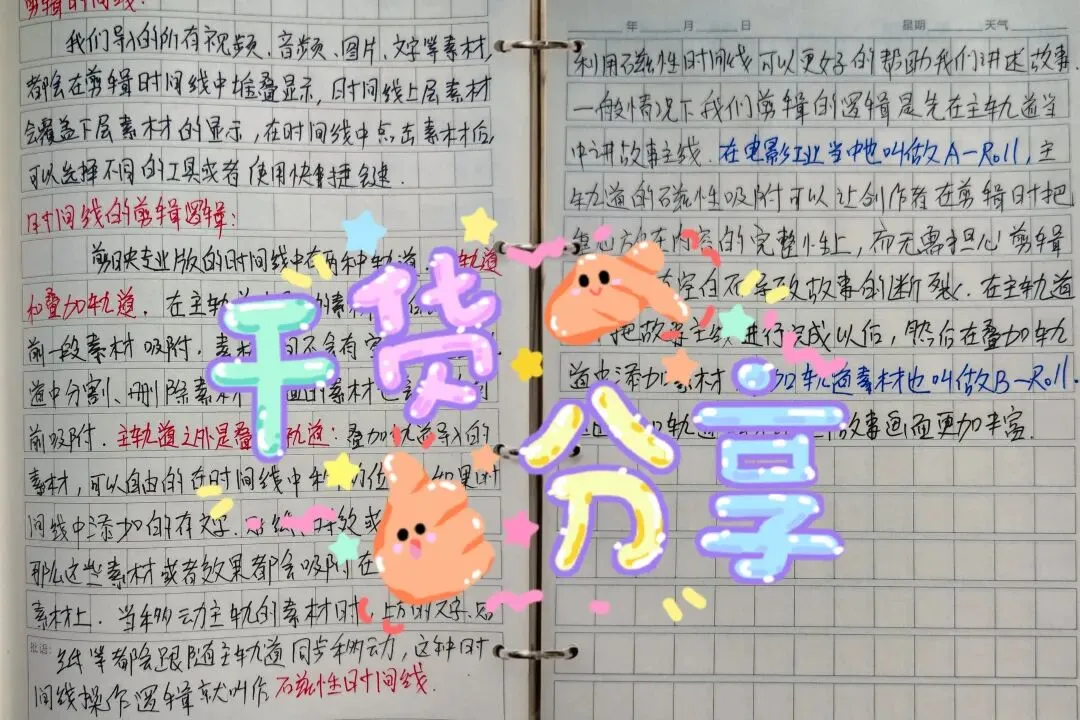 剪辑时间线:
我们导入的所有视频、音频、图片、文字等素材,
都会在剪辑时间线中堆叠显示,时间线上层素材
会覆盖下层素材的显示,在时间线中点击素材后,
可以选择不同的工具或者使用快捷键.
时间线的剪辑逻辑:
剪映专业版的时间线中有两种轨道. 轨道
和叠加轨道. 在主轨 的素
前一段素材吸附. 素 间不会有空
道中分割、删除素材 面的素材也
前吸附. 主轨道之外是叠 轨道: 叠加轨道导入的
素材,可以自由的在时间线中移 的位 如果时
间线中添加的有文字. 效或
那么这些素材或者效果都会吸附在
素材上. 当移动主轨的素材时, 上方的文字.
批语:
纸等都会跟随主轨道同步移动,这种时
间线操作逻辑就叫作磁性时间线.
年 月 日 星期 天气
利用磁性时间线可以更好的帮助我们讲述故事.
一般情况下我们剪辑的逻辑是先在主轨道当
中讲故事主线. 在电影工业当中也叫做A-Roll, 主
轨道的磁性吸附可以让创作者在剪辑时把
重心放在内容的完整性上, 而无需担心剪辑
空白而导致故事的断裂. 在主轨道
把故事主线进行完成以后, 然后在叠加轨
道中添加素材 加轨道素材也叫做B-Roll.
加轨道 故事画面更加丰富.
干货
分享